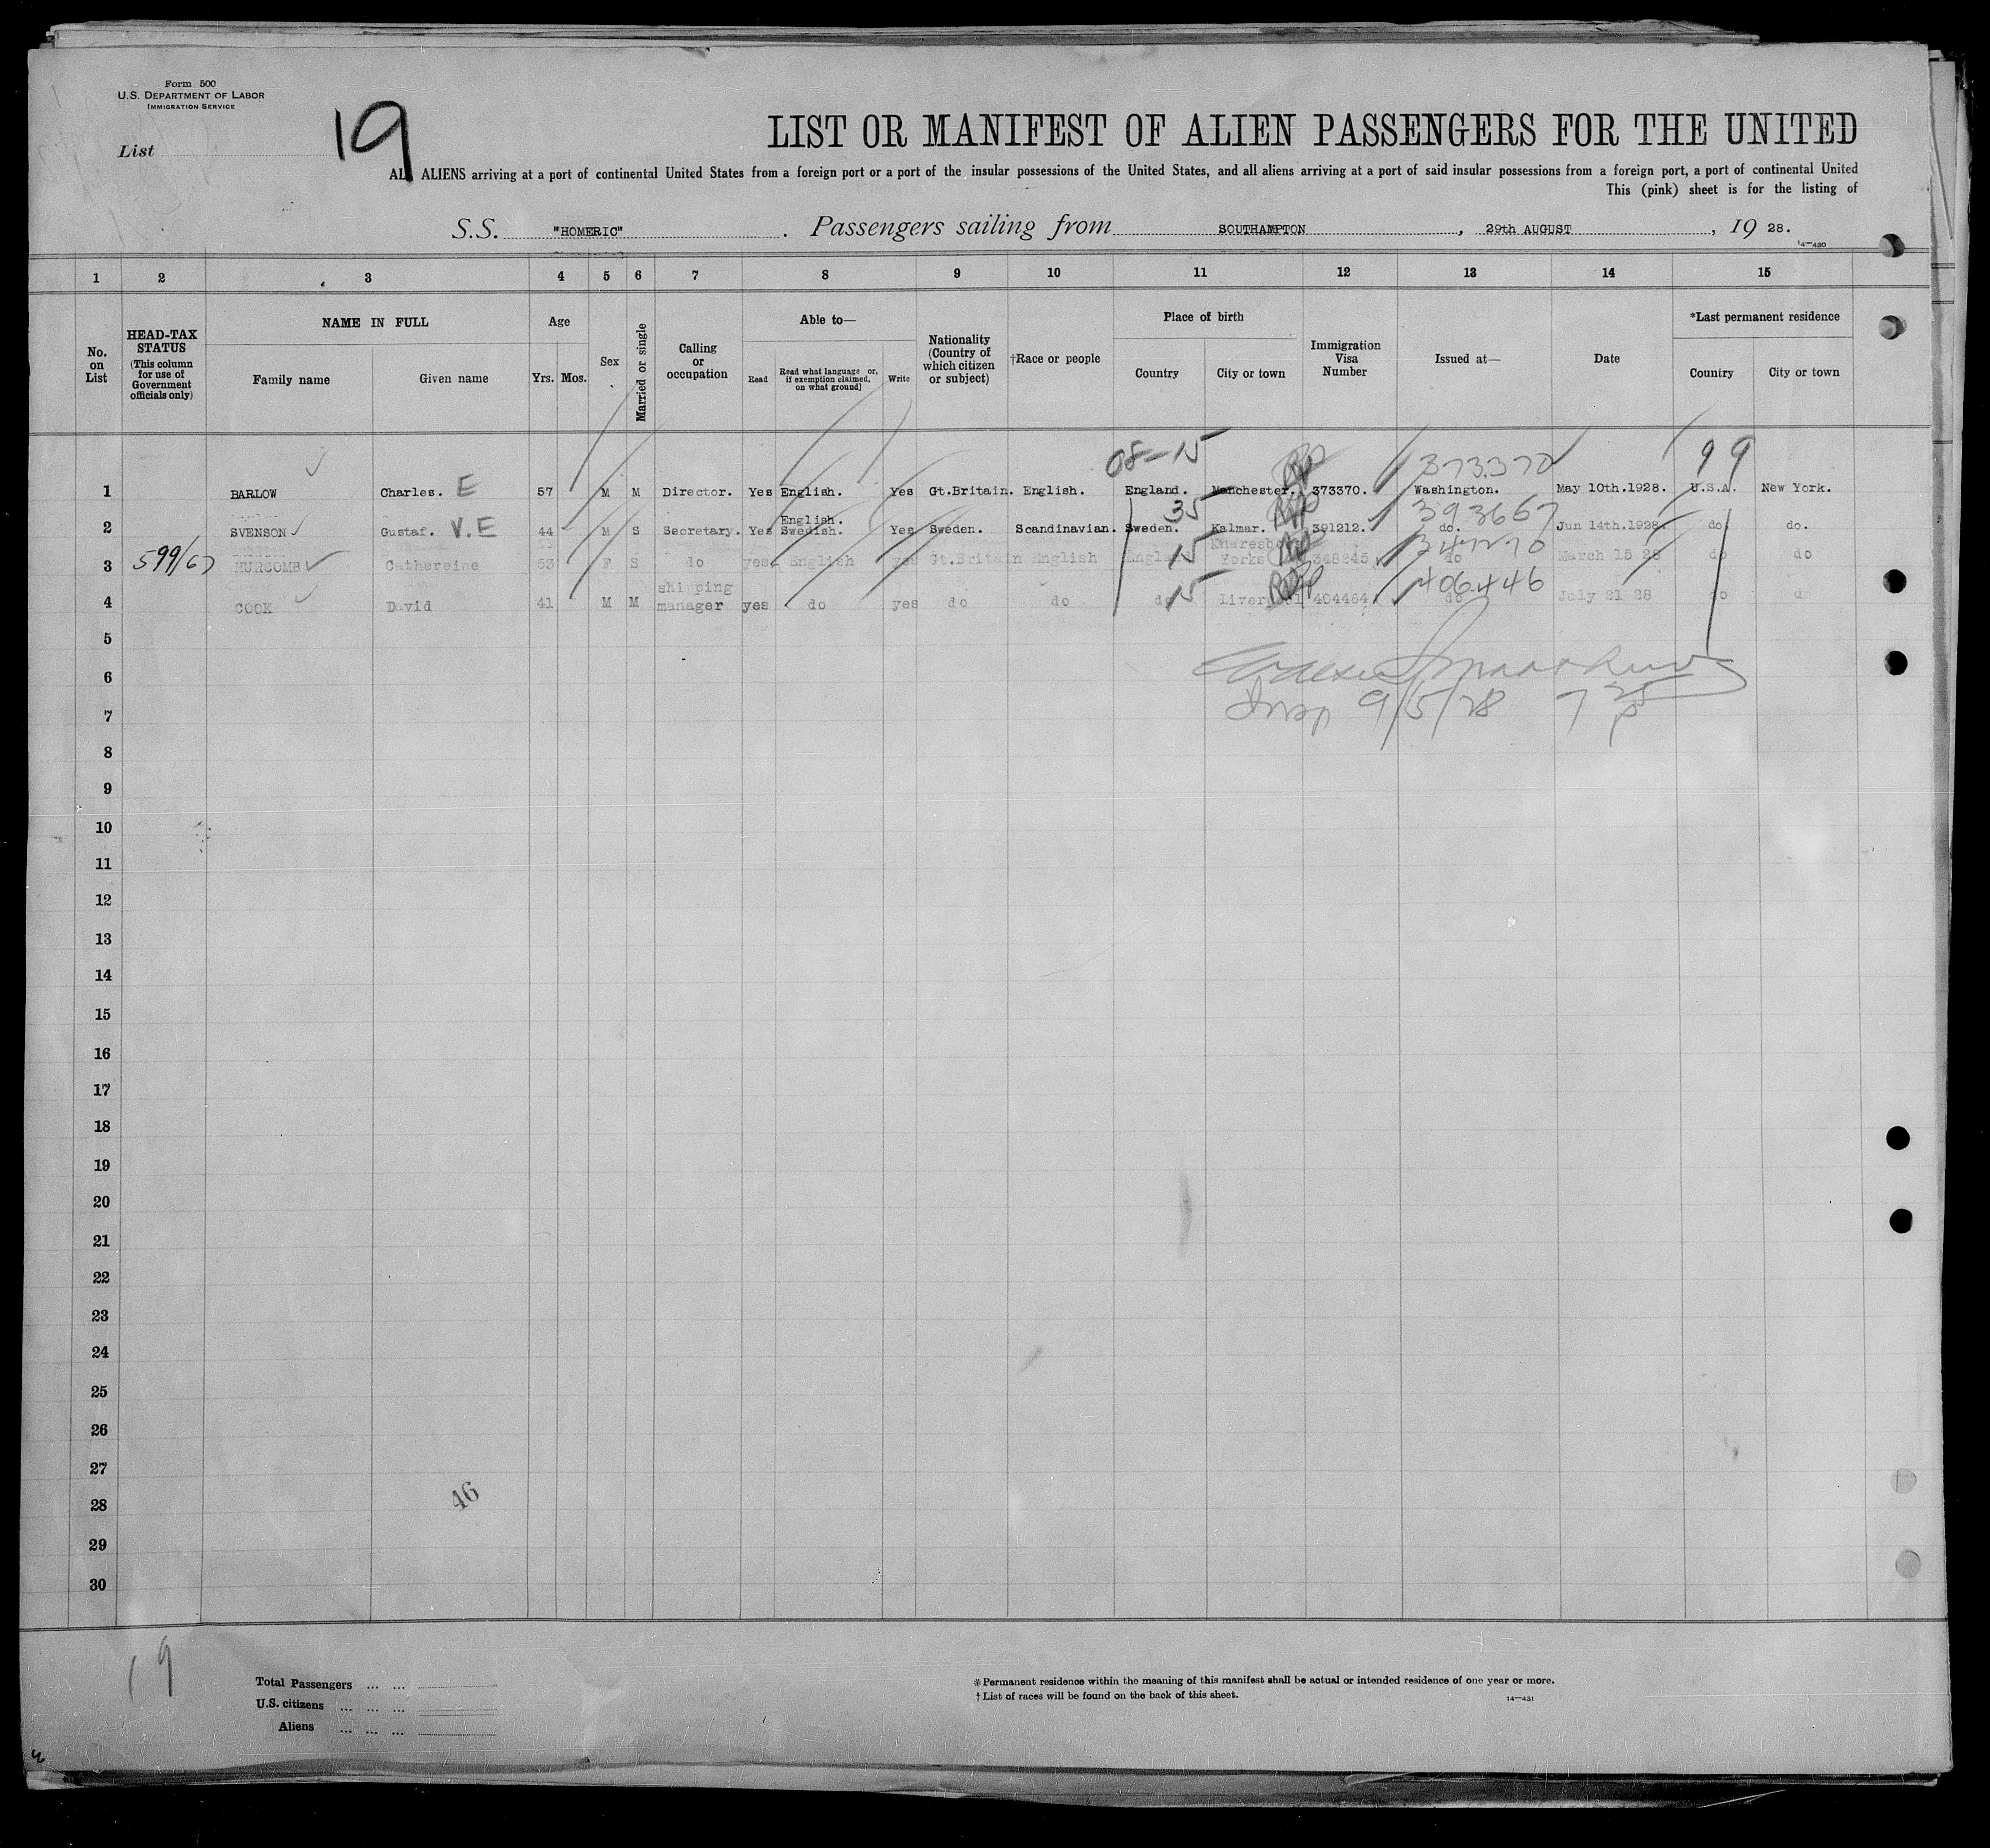 Form 500
U.S. DEPARTMENT OF LABOR
IMMIGRATION SERVICE
List 19
LIST OR MANIFEST OF ALIEN PASSENGERS FOR THE UNITED
ALL ALIENS arriving at a port of continental United States from a foreign port or a port of the insular possessions of the United States, and all aliens arriving at a port of said insular possessions from a foreign port, a port of continental United
This (pink) sheet is for the listing of
S.S. "HOMERIC". Passengers sailing from SOUTHAMPTON, 29th AUGUST, 1928.
14—430
1 2 3 4 5 6 7 8 9 10 11 12 13 14 15
No. on List
HEAD-TAX STATUS (This column for use of Government officials only)
NAME IN FULL
Family name Given name
Age
Yrs. Mos.
Sex
Married or single
Calling or occupation
Able to—
Read
Read what language or, if exemption claimed, on what ground]
Write
Nationality (Country of which citizen or subject)
†Race or people
Place of birth
Country City or town
Immigration Visa Number
Issued at—
Date
*Last permanent residence
Country City or town
08-15 373370 99
1 BARLOW Charles. E 57 M M Director. Yes English. Yes Gt.Britain. English. England. Manchester. 373370. Washington. May 10th.1928. U.S.A. New York.
35 393667
2 SVENSON Gustaf. V.E 44 M S Secretary. Yes English. Swedish. Yes Sweden. Scandinavian. Sweden. Kalmar. 391212. do. Jun 14th.1928. do. do.
3 599/67 HURCOMB Cathereine 53 F S do yes English yes Gt.Britain English England 15 Yorks 348245 do March 15 28 do do
406446
4 COOK David 41 M M shipping manager yes do yes do do do 15 Liverpool 404464 do July 21 28 do do
5
6
Insp 9/5/28 7 25 p
7
8
9
10
11
12
13
14
15
16
17
18
19
20
21
22
23
24
25
26
27
28
46
29
30
19
Total Passengers ... ...
U.S. citizens ... ... ...
Aliens ... ... ...
* Permanent residence within the meaning of this manifest shall be actual or intended residence of one year or more.
† List of races will be found on the back of this sheet.
14—431